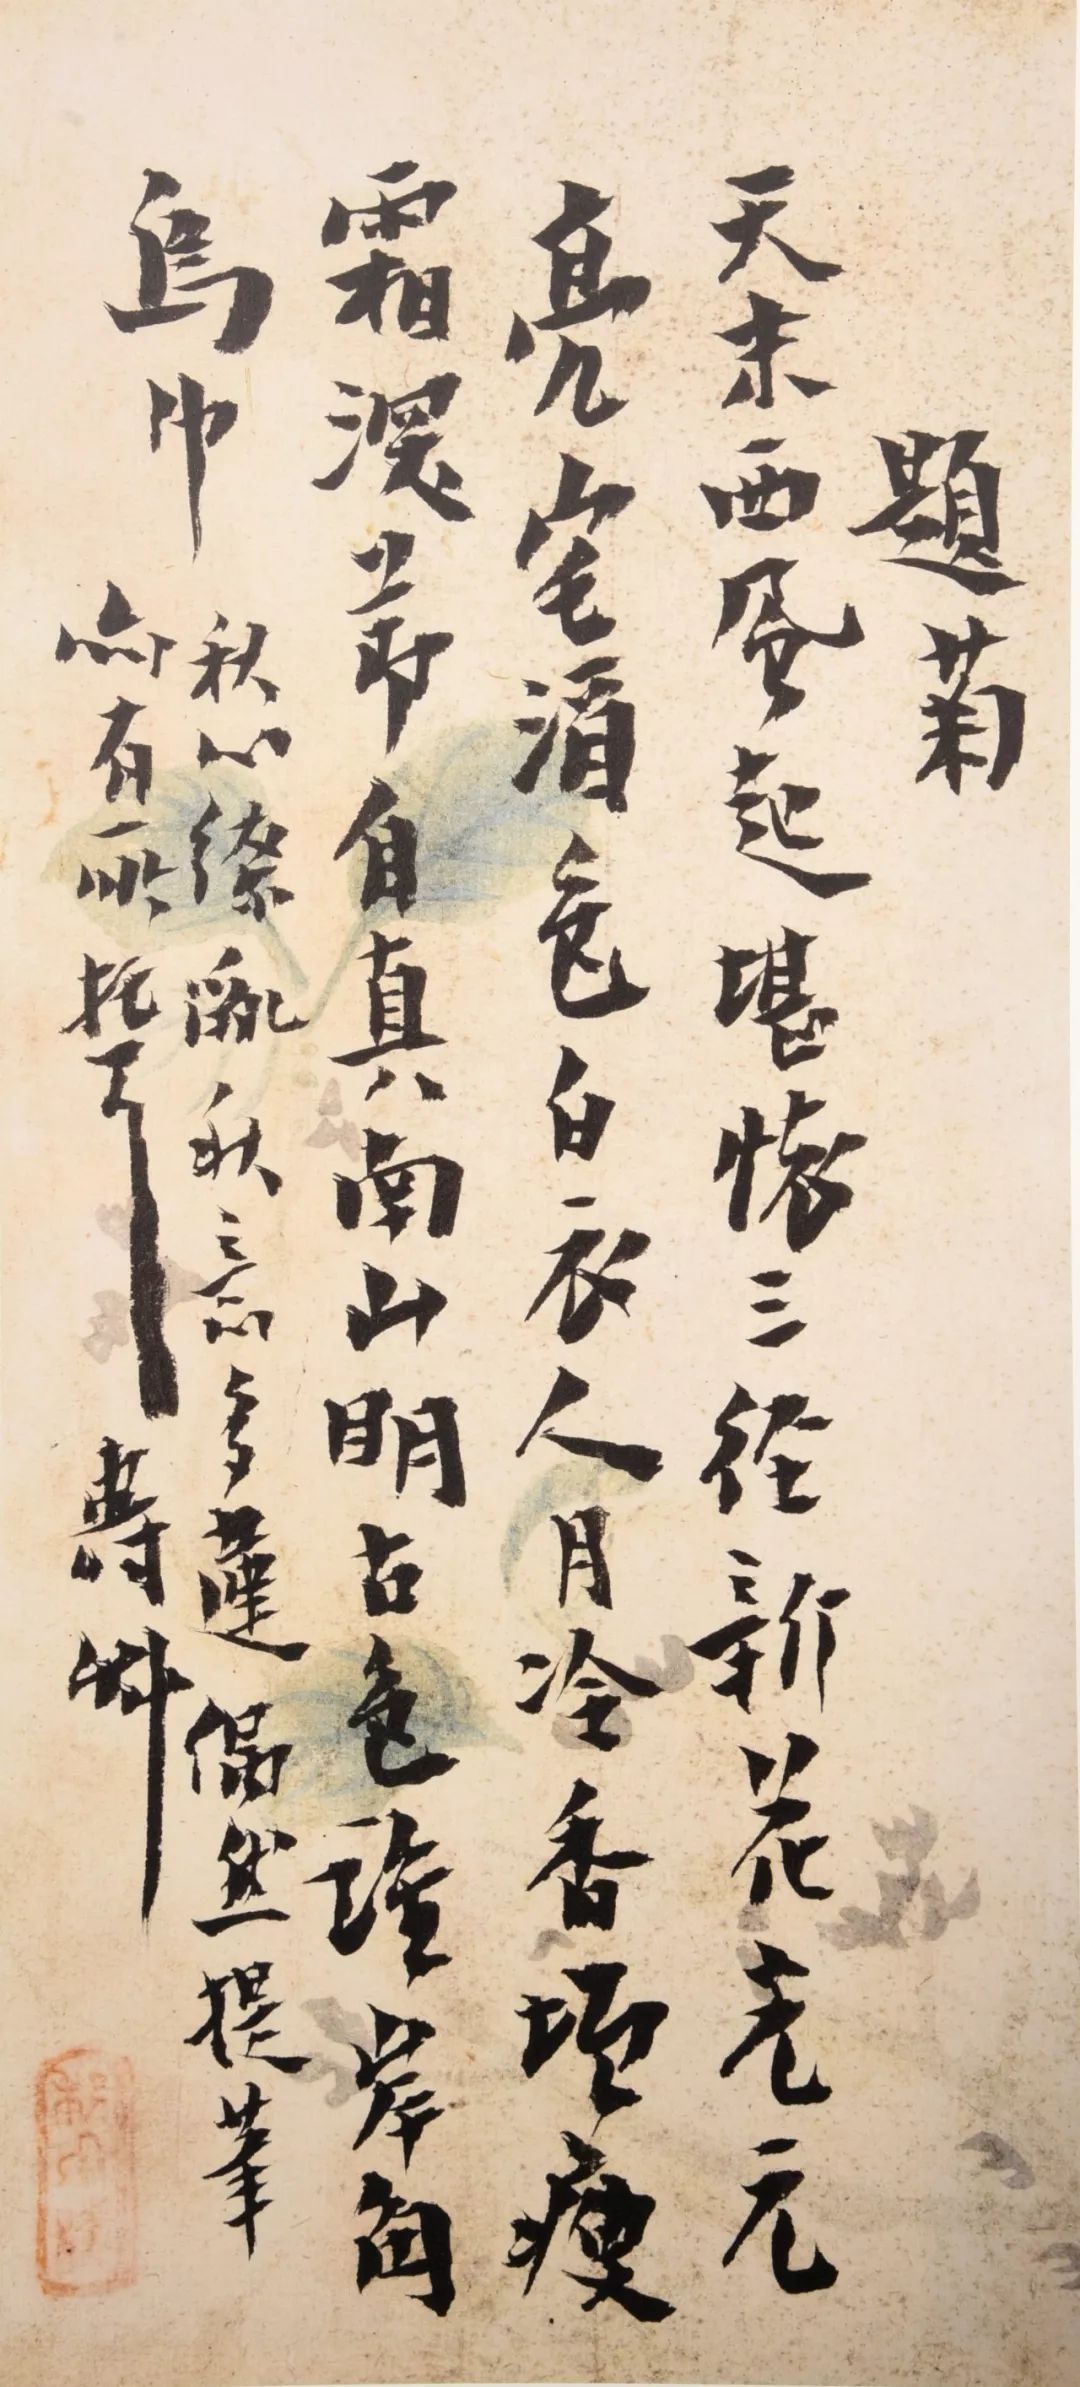 題菊
天末西風起堪懷三徑新花老元
亮宅酒色白衣人月冷香增瘦
霜深節自真南山明古色誰岸角
烏巾
秋心繚亂秋意多違偶然提筆
亦有所托耳
壽艸